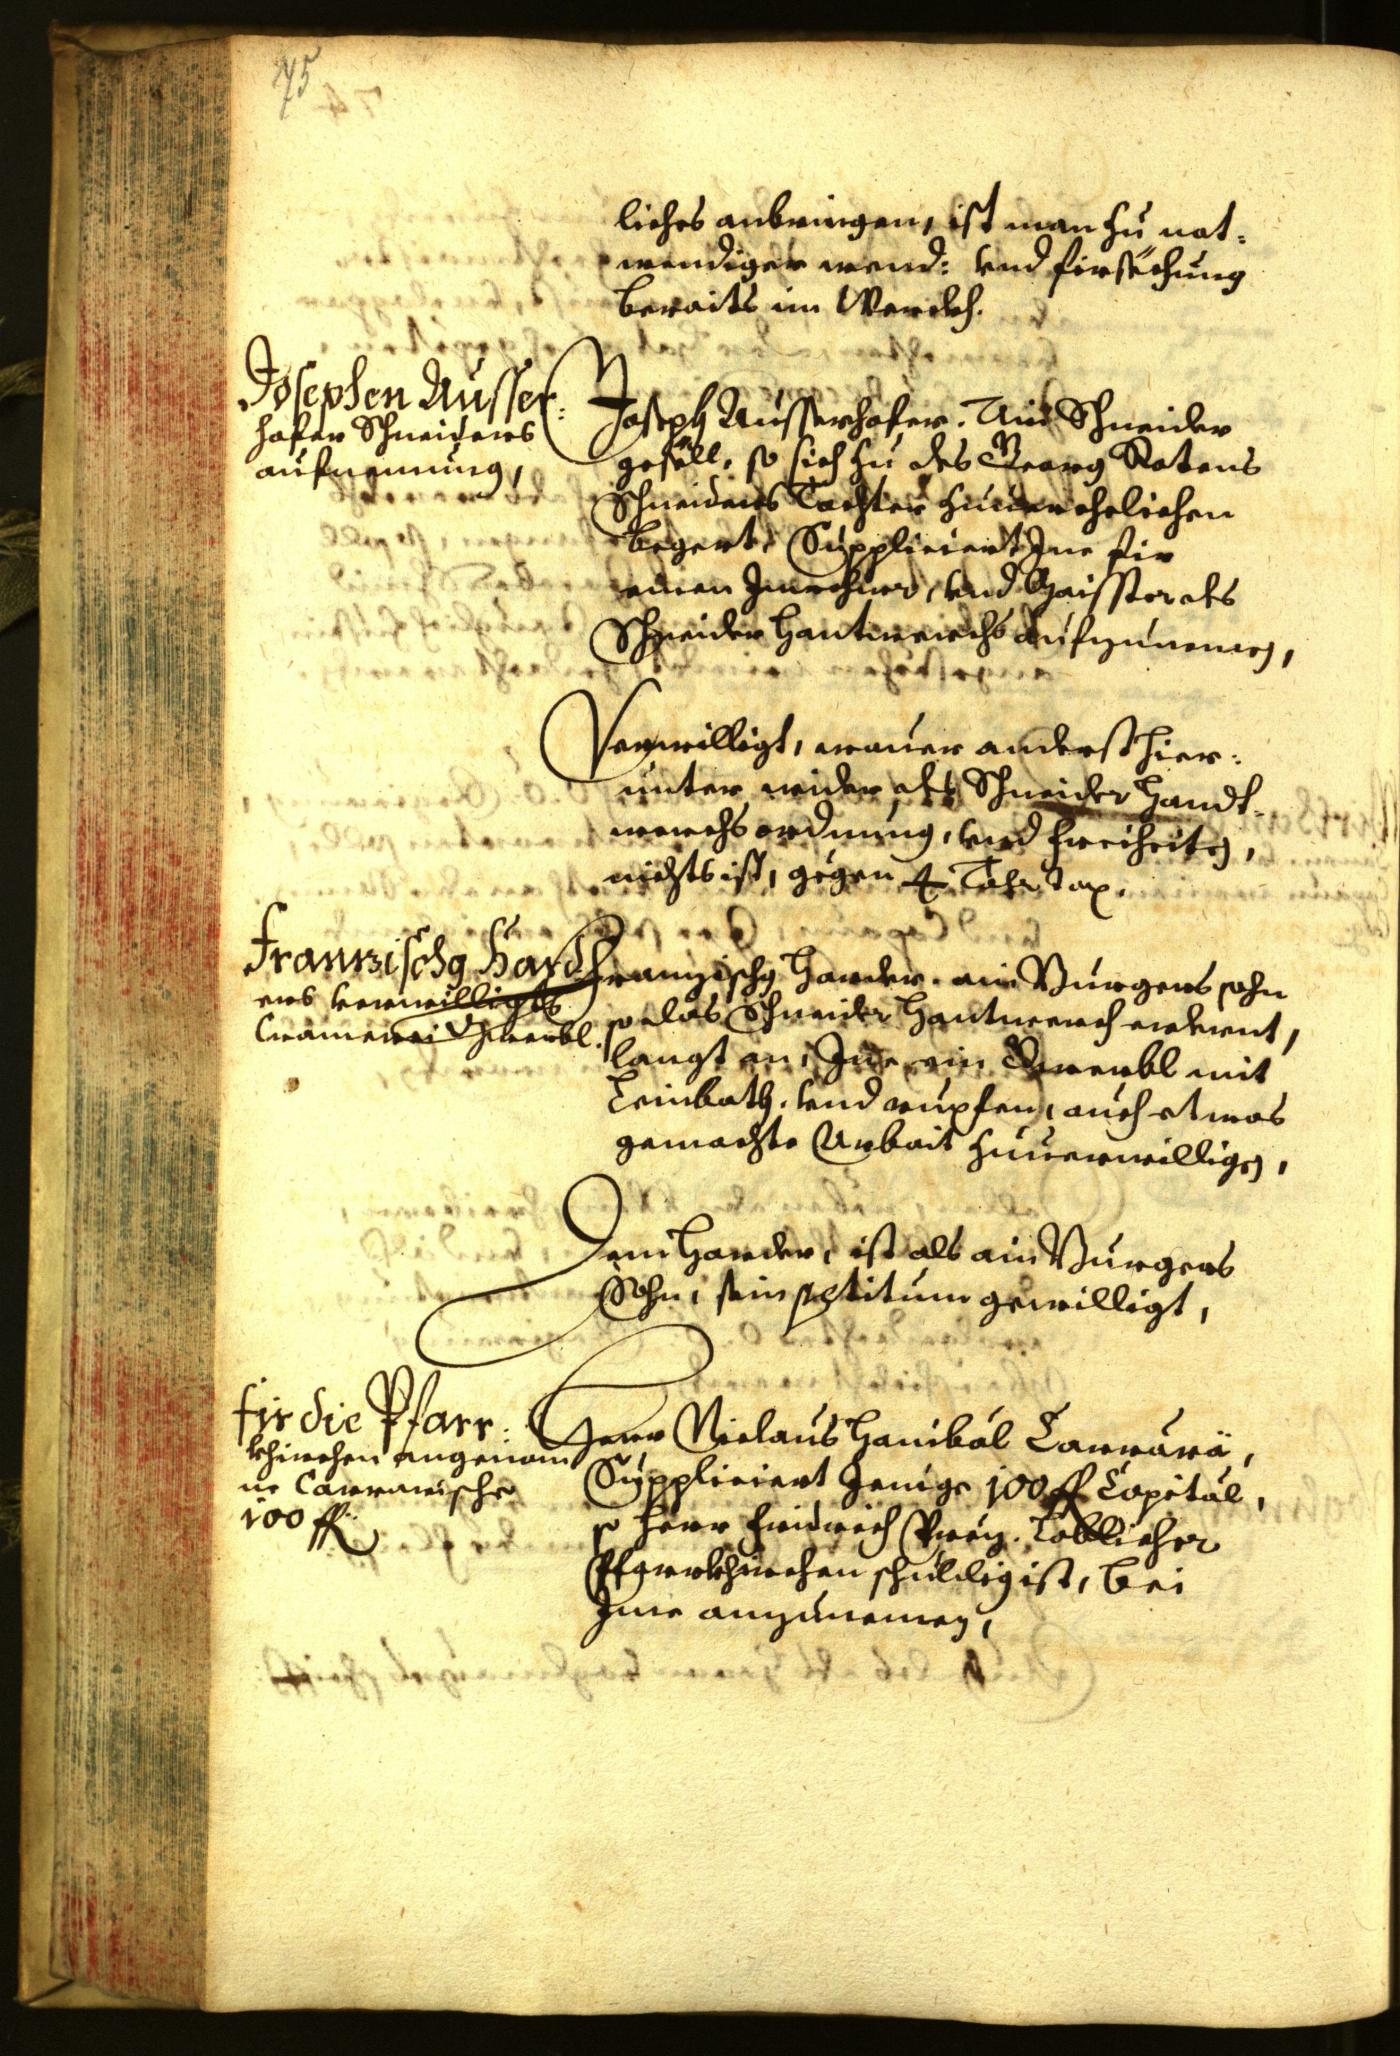 75
liches anbringen, ist man zu not-
wendiger wend: vnd fürsechung
beraits im Werckh.
Josephen Ausser:
hofer Schneiders
aufnemung,
Joseph Ausserhofer. Ain Schneider
gesöll, so sich zu des Georg Katens
Schneiders Tochter zuuerehelichen
begert, Suppliciert Ine für
einen Inwohner, vnd Maister des
Schneider Hantwerchs aufzunemen,
Verwilligt, wauer anderst hier:
unter wider des Schneider Handt
werchs ordnung, vnd freiheiten,
nichts ist, gegen 4 Taler tax.
Franzischg Hard
ers verwilligts
Cramerei Gwerbl.
Franzischg Harder. ain Burgers sohn
so das Schneider Hantwerch erlernt,
langt an, Ime ein Gwerbl mit
Leinbath. vnd rupfen, auch etwas
gemachte Arbait zuuerwilligen,
Dem Harder, ist als ain Burgers
Sohn, sein petitum gewilligt,
für die Pfarr:
khirchen angenom
ne Carrarische
100 ff
Herr Niclaus Hanibal Carrara,
Suppliciert Jenige 100 ff Capital,
so Herr Fridrich Löblicher
Pfarrkhirchen schuldig ist, bei
Ime anzunemen,